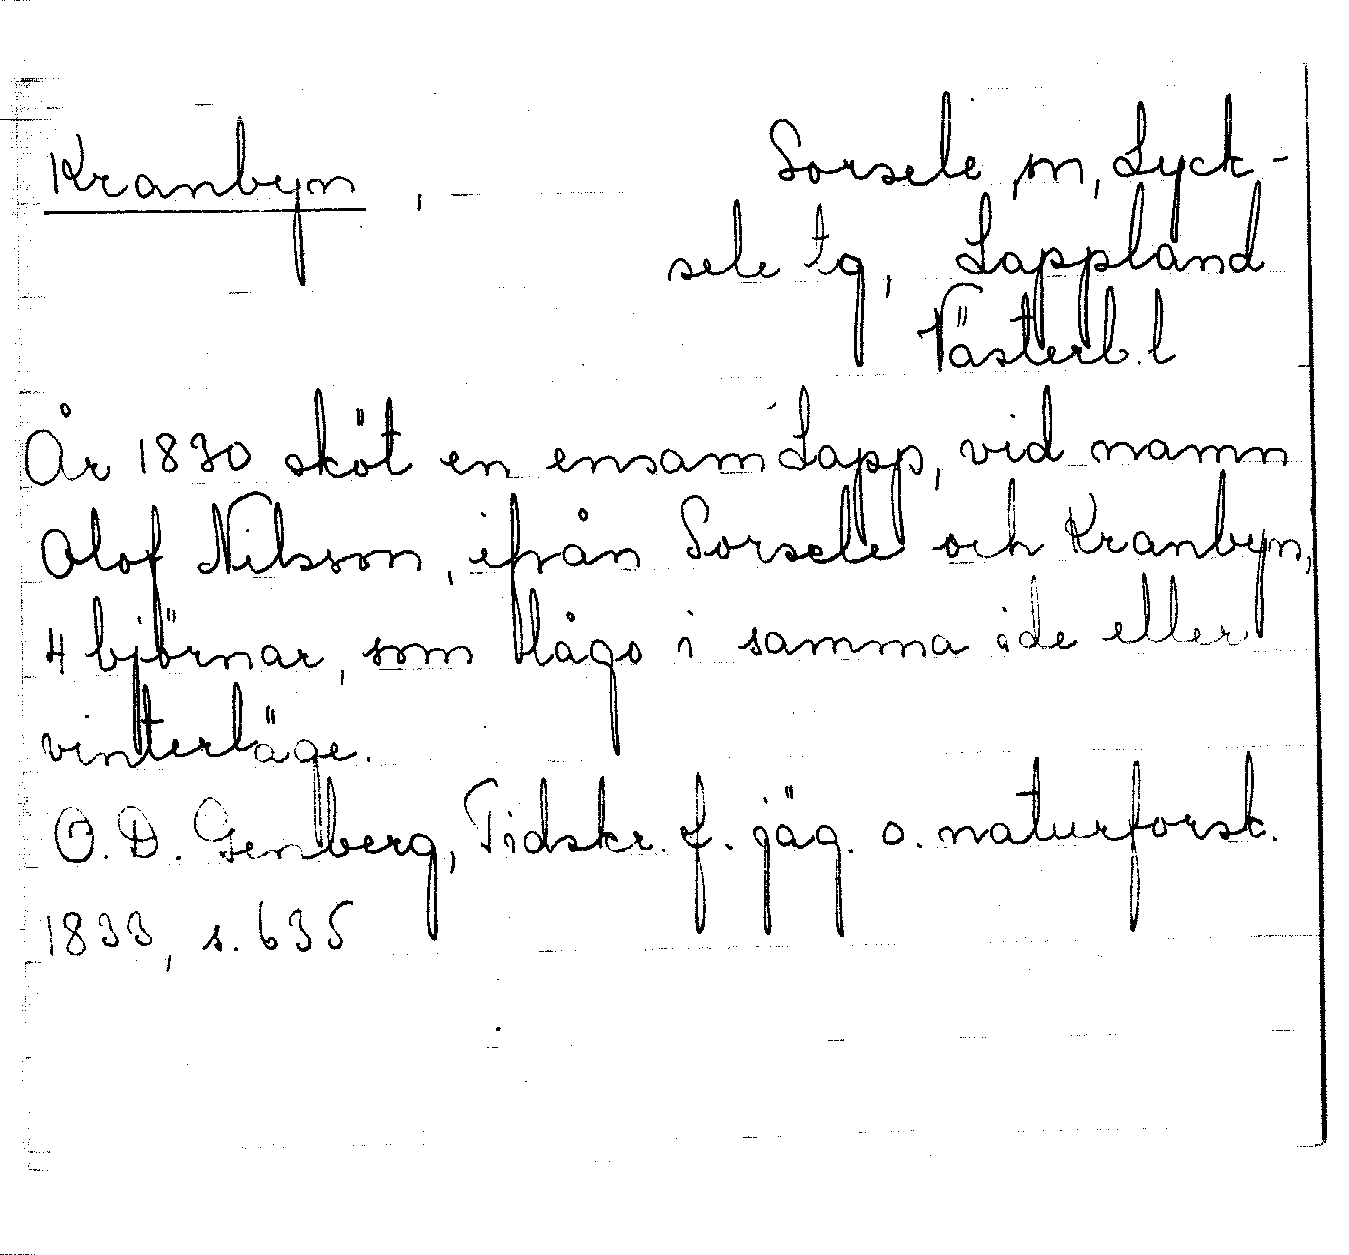 Kranbyn, Sorsele sn, Lyck-
sele tg, Lappland
Västerb. l
År 1830 sköt en ensam Lapp, vid namn
Olof Nilsson, ifrån Sorsele och Kranbyn,
4 björnar, som lågo i samma ide eller
vinterläge.
O. D. Genberg, Tidskr. f. jäg. o. naturforsk.
1833, s. 635